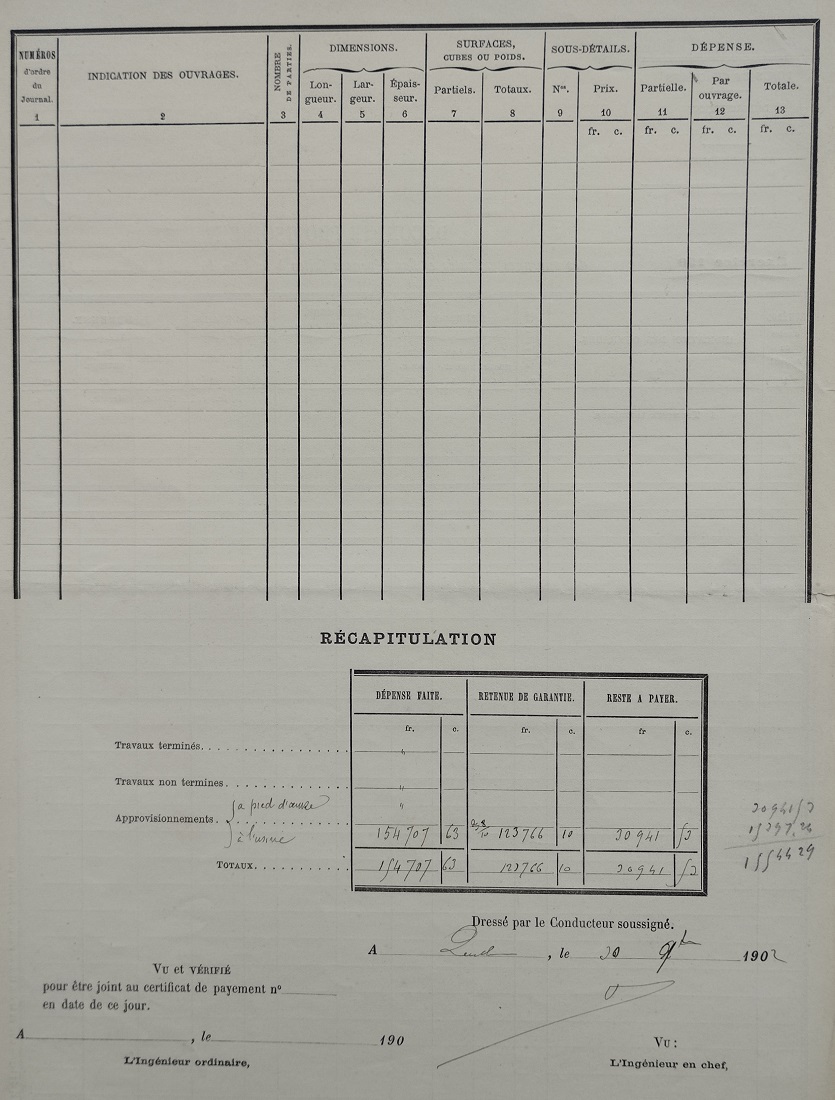 NUMÉROS d'ordre du Journal.
INDICATION DES OUVRAGES.
NOMBRE DE PARTIES.
DIMENSIONS.
SURFACES, CUBES OU POIDS.
SOUS-DÉTAILS.
DÉPENSE.
Lon-gueur. Lar-geur. Épais-seur. Partiels. Totaux. Nos. Prix. Partielle. Par ouvrage. Totale.
1 2 3 4 5 6 7 8 9 10 11 12 13
fr. c. fr. c. fr. c. fr. c.
RÉCAPITULATION
DÉPENSE FAITE. RETENUE DE GARANTIE. RESTE A PAYER.
fr. c. fr. c. fr c.
Travaux terminés. "
Travaux non termines. "
Approvisionnements. { à pied d'œuvre "
à l'usine 154707 63 123766 10 30941 53
TOTAUX. 154707 63 123766 10 30941 53
30941 53
Dressé par le Conducteur soussigné.
A , le 30 9bre 1902
VU et VÉRIFIÉ
pour être joint au certificat de payement no
en date de ce jour.
A , le 190
Vu :
L'Ingénieur ordinaire, L'Ingénieur en chef,